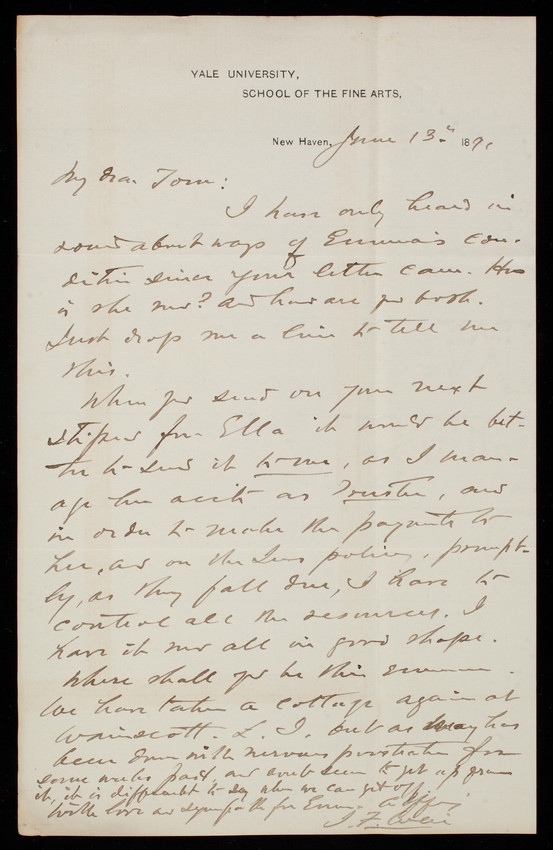 YALE UNIVERSITY,
SCHOOL OF THE FINE ARTS,
New Haven, June 13th 1891
My dear Tom:
I have only heard in
round about ways of Emma's con-
dition since your letter came. How
is she now? and how are you both.
Just drop me a line to tell me
this.
When you send on your next
stipend for Ella it would be bet-
ter to send it to me, as I man-
age her accts as Trustee, and
in order to make the payments to
her, and on the Ins policies, prompt-
ly, as they fall due, I have to
control all the resources. I
have it now all in good shape.
Where shall you be this summer.
We have taken a cottage again at
Wainscott. L. I. but as May has
been down with nervous prostration for
some weeks past, and don't seem to get up from
it, it is difficult to say when we can get off.
With love and sympathy for Emma affy
J. F. Weir